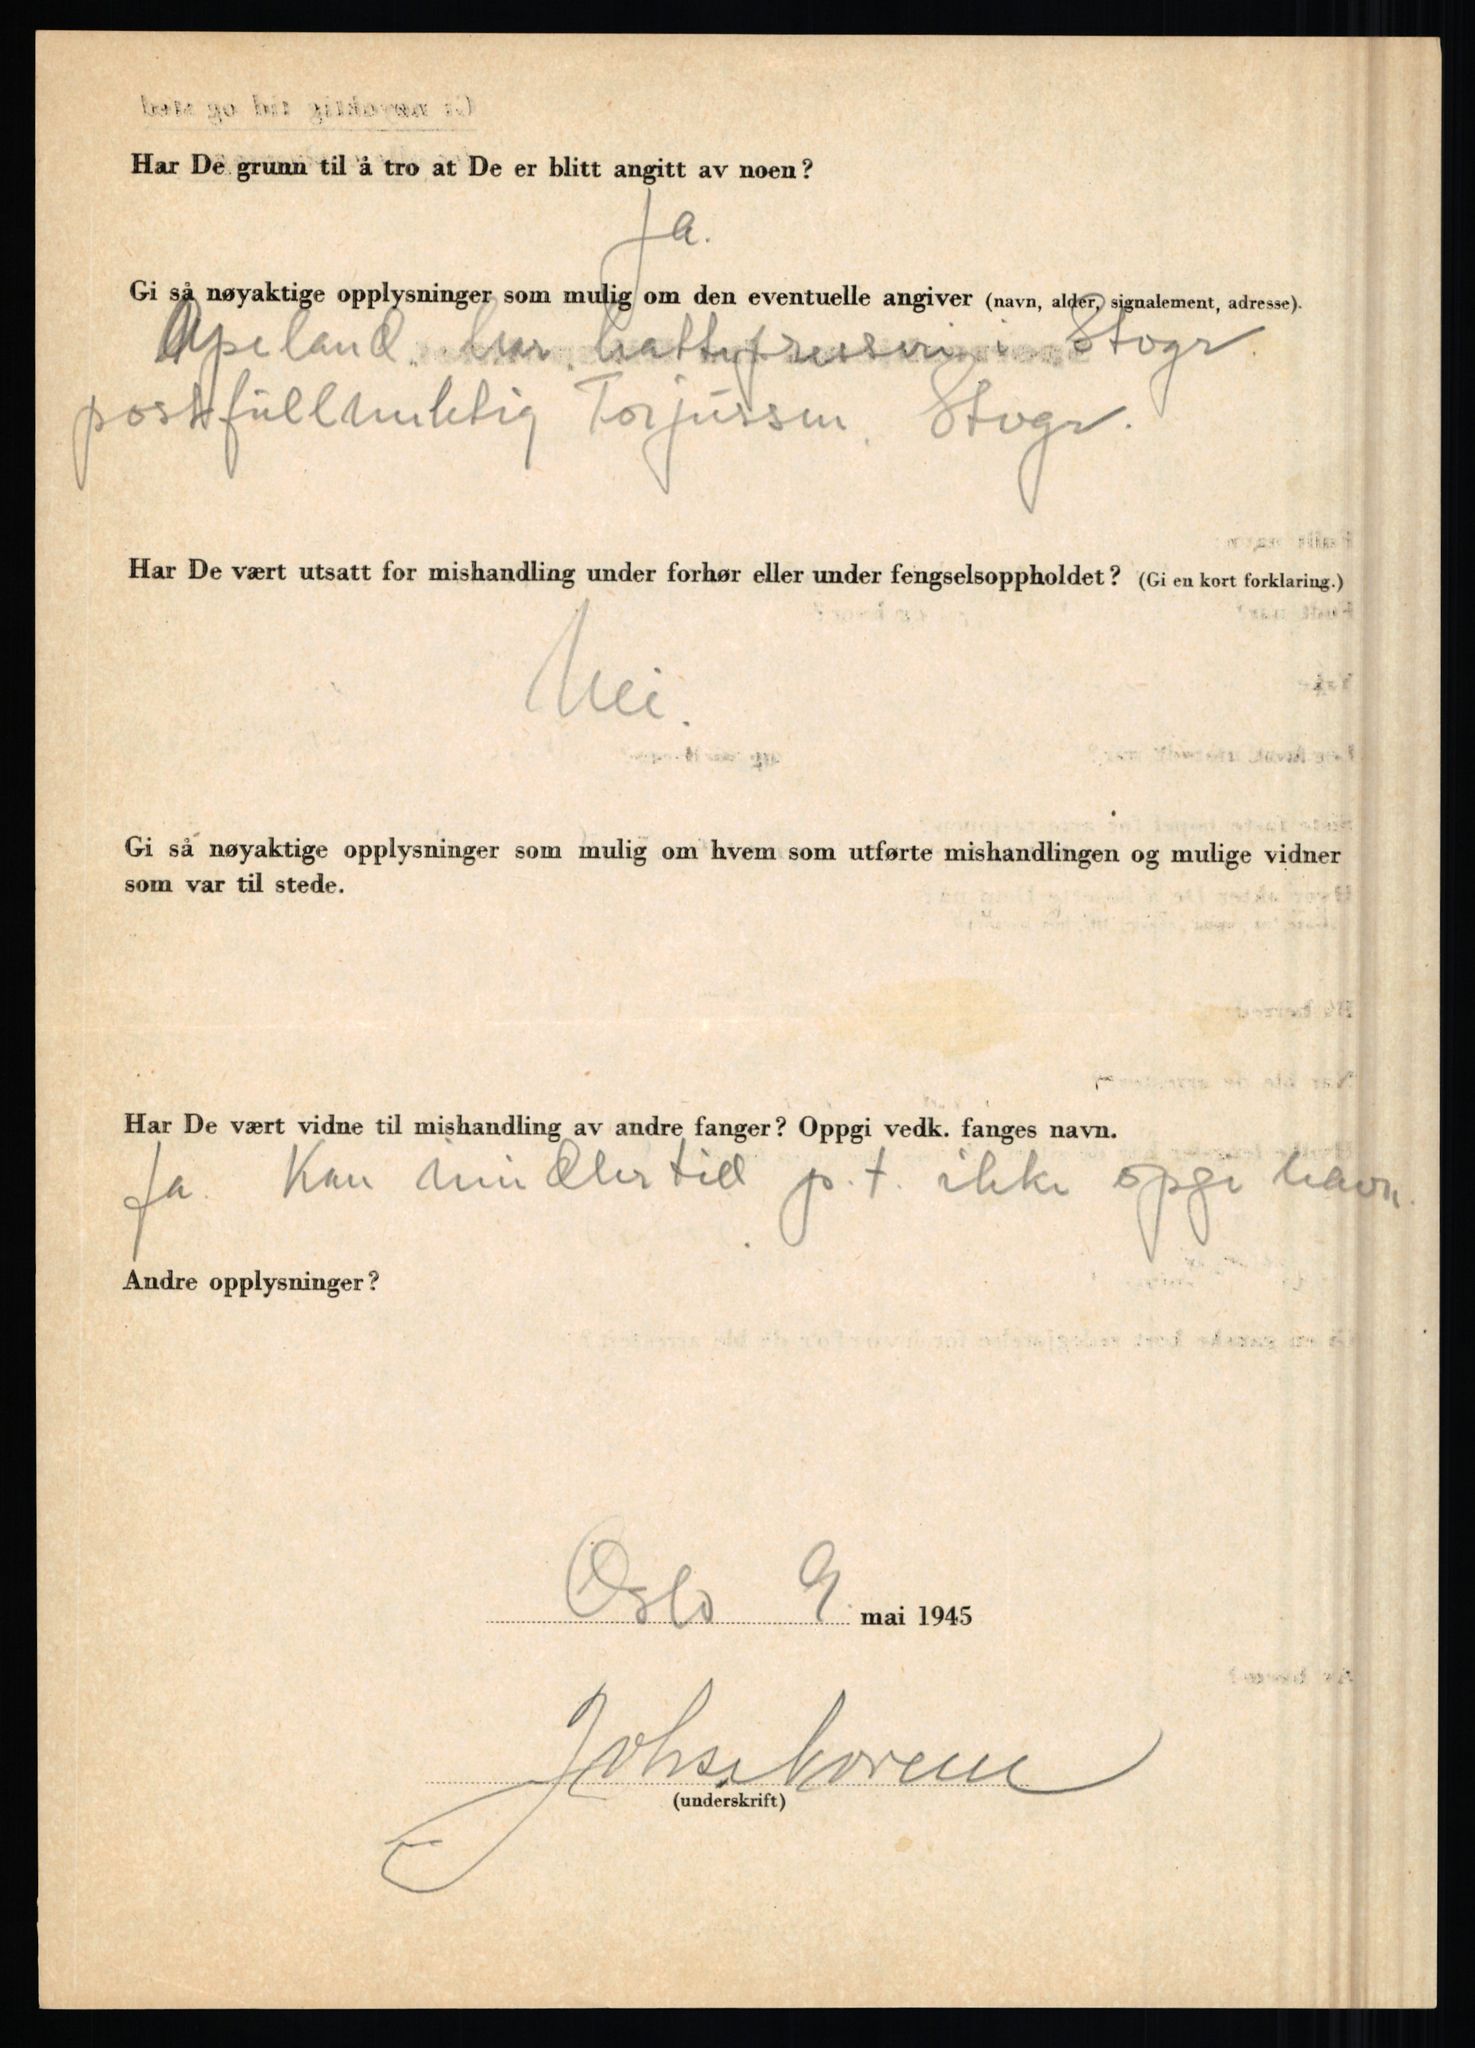 Har De grunn til å tro at De er blitt angitt av noen?
Ja.
Gi så nøyaktige opplysninger som mulig om den eventuelle angiver (navn, alder, signalement, adresse).
Apeland. har hattepresseri i Stvgr.
postfullmektig Torjussen, Stvgr.
Har De vært utsatt for mishandling under forhør eller under fengselsoppholdet? (Gi en kort forklaring.)
Nei.
Gi så nøyaktige opplysninger som mulig om hvem som utførte mishandlingen og mulige vidner
som var til stede.
Har De vært vidne til mishandling av andre fanger? Oppgi vedk. fanges navn.
Ja. Kan imidlertid p.t. ikke opgi navn.
Andre opplysninger?
Oslo 9. mai 1945
(underskrift)